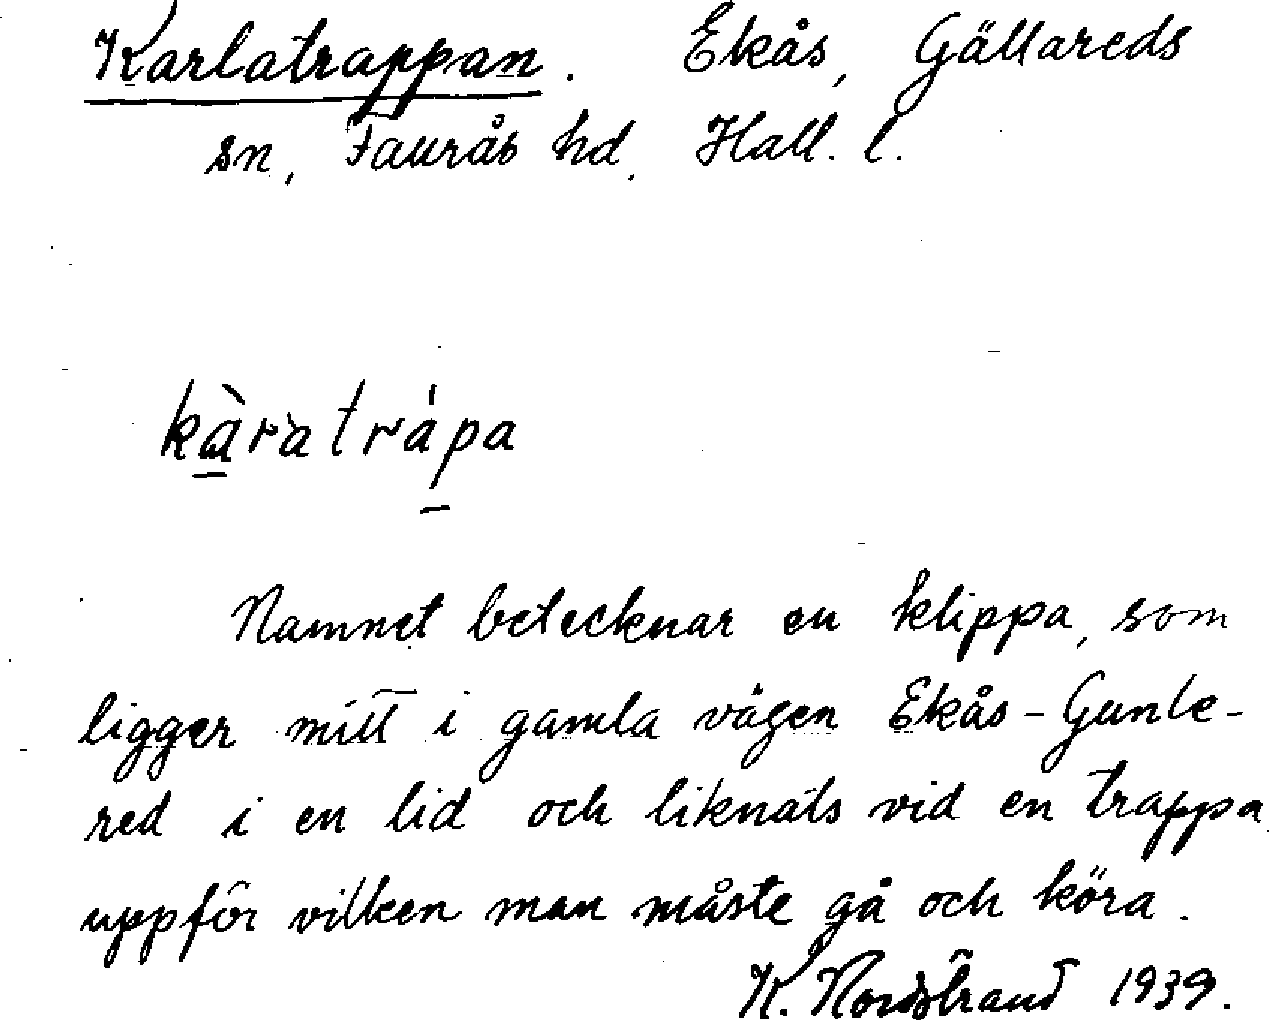 Karlatrappan. Ekås, Gällareds
sn, Faurås hd. Hall. l.
kàràtrápa
Namnet betecknar en klippa, som
ligger mitt i gamla vägen Ekås - Gunle-
red i en lid och liknats vid en trappa
uppför vilken man måste gå och köra.
K. Nordstrand 1939.